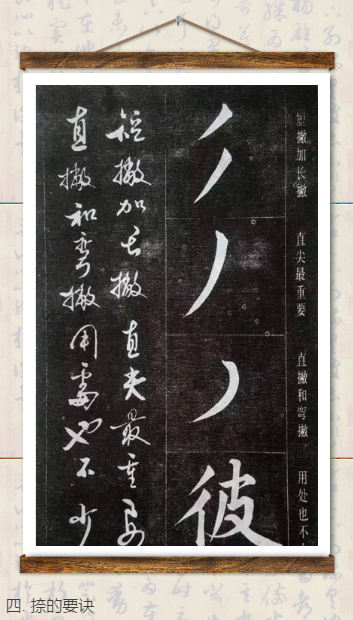 短撇加长撇 直尖最重要 直撇和弯撇 用处也不
彼
短撇加长撇 直尖最重要
直撇和弯撇 用处也不少
四. 捺的要诀